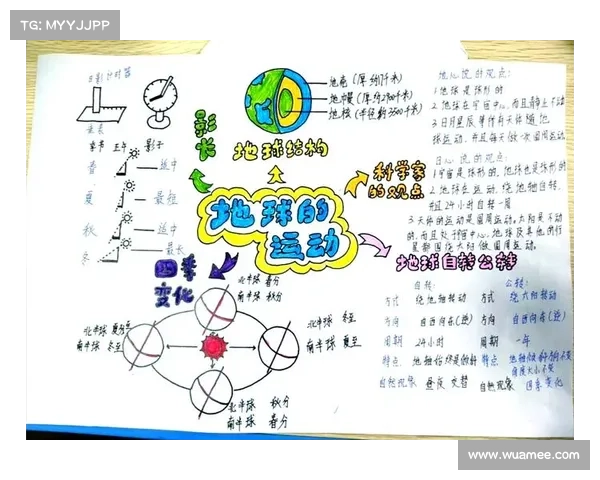 TG: MYYJJPP
日影计时器
圭表
季节 正午 影子
春 适中
夏 最短
秋 适中
冬 最长
影长
地壳(厚约17千米)
地幔(厚约2900千米)
地核(半径约3500千米)
地球结构
科学家的观点
地心说的观点:
1.地球是球形的
2.地球在宇宙中心,而且静止不动
3.日月星辰等所有天体随地球运动,并且每天做一次圆周运动
日心说的观点:
1.宇宙是球形的,地球也是球形的
2.地球在运动,绕地轴自转,并且24小时自转一周
3.天体的运动是圆周运动。太阳是不动的,而且处于宇宙中心,地球及其他的行星都围绕太阳做圆周运动。
地球的运动
四季变化
北半球 春分
南半球 秋分
北半球 夏至
南半球 冬至
北半球 冬至
南半球 夏至
北半球 秋分
南半球 春分
地球自转公转
自转: 公转:
方式 绕地轴转动 方式 绕太阳转动
方向 自西向东(逆) 方向 自西向东(逆)
周期 24小时 周期 一年
特点: 特点
自然现象 昼夜交替 自然现象 四季变化
www.wuamee.com